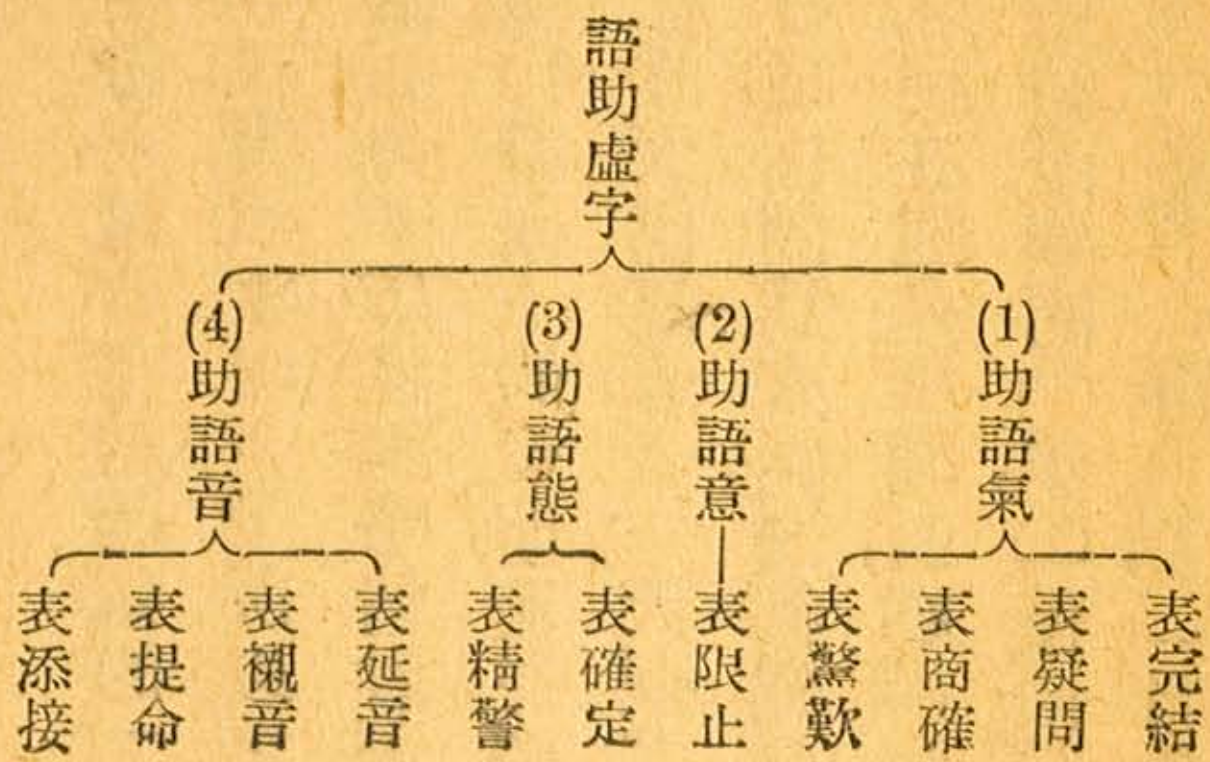 語助虛字
(1)助語氣
表完結
表疑問
表商確
表驚歎
(2)助語意
表限止
(3)助語態
表確定
表精警
(4)助語音
表延音
表襯音
表提命
表添接